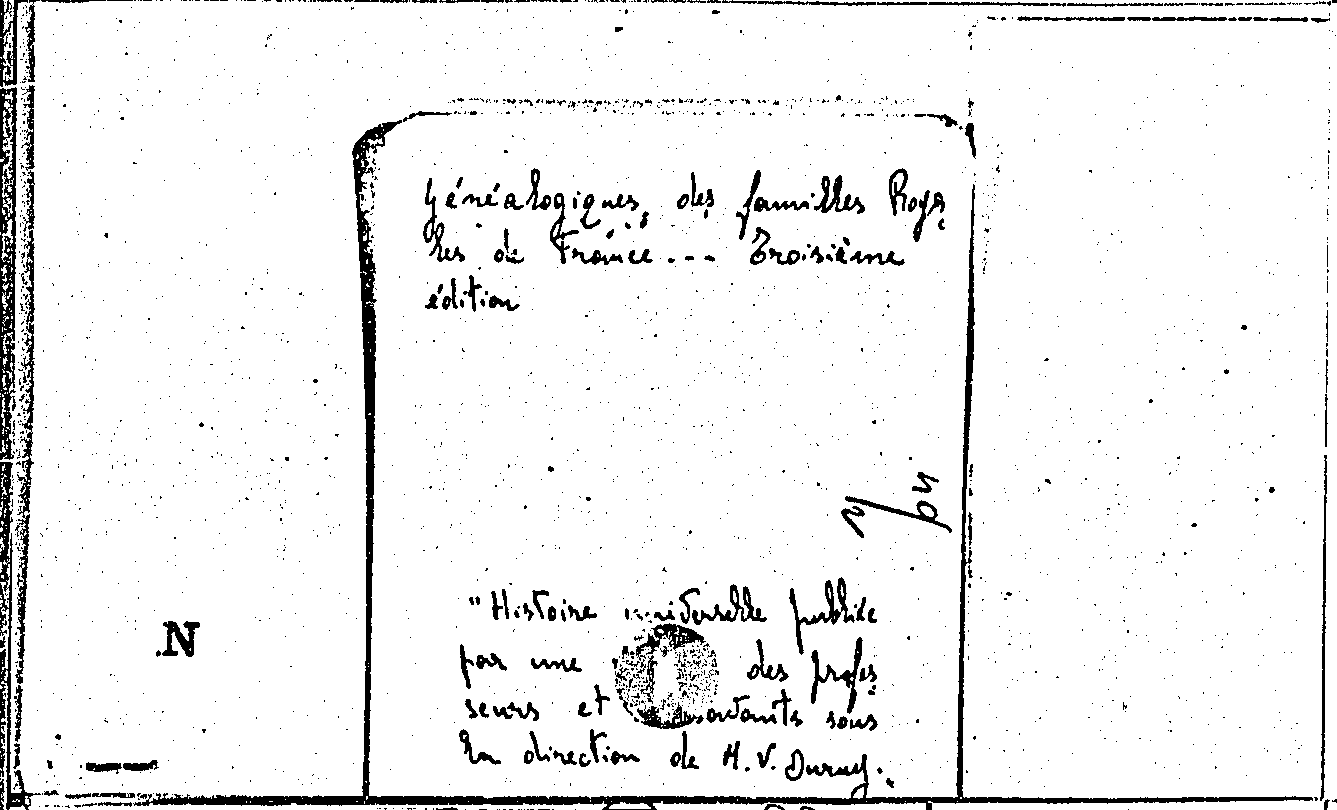 généalogiques, des familles Roya
les de France... Troisième
édition
"Histoire universelle publiée
par une des profes
seurs et savants sous
la direction de M. V. Duruy.
.N